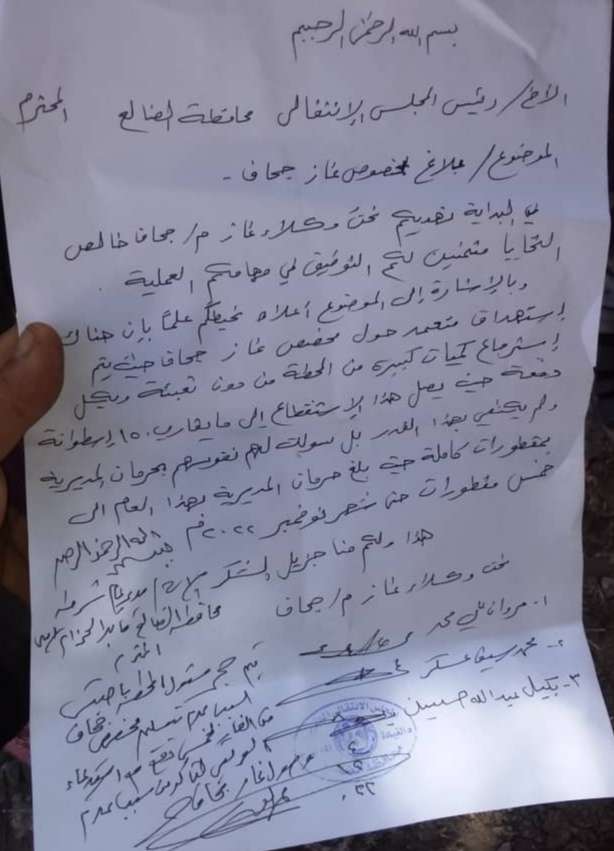 بسم الله الرحمن الرحيم
الأخ/ رئيس المجلس الإنتقالي محافظة الضالع المحترم
الموضوع/ بلاغ بخصوص غاز جحاف -
في البداية نهديكم نحن وكلاء غاز م/ جحاف خالص
التحايا متمنين لكم التوفيق في مهامكم العملية .
وبالإشارة إلى الموضوع أعلاه نحيطكم علماً بإن هناك
إستهداف متعمد حول مخصص غاز جحاف حيث يتم
إسترجاع كميات كبيره من المحطة من دون تعبئة وبكل
دفعة حيث يصل هذا الإستقطاع إلى ما يقارب ١٥٠ إسطوانة
ولم يكتفي بهذا القدر بل سولت لهم نفوسهم بحرمان المديرية
بمقطورات كاملة حيث بلغ حرمان المديرية بهذا العام الى
خمس مقطورات حتى شهر نوفمبر ٢٠٢٢م
هذا ولكم منا جزيل الشكر
نحن وكلاء غاز م/ جحاف
١- مروان علي محمد
٢- محمد سيف عسكر
٣- بكيل عبدالله حسين
بسم الله الرحمن الرحيم
الأخ/ مدير عام شرطة
محافظة الضالع قائد الحزام
المحترم
يتم حجز مسئول المحطة